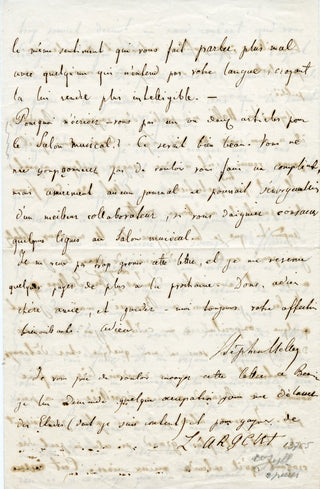 le même sentiment qui vous fait parler plus mal
avec quelqu'un qui n'entend pas votre langue croyant
la lui rendre plus intelligible. —
Pourquoi n'écririez-vous pas un ou deux articles pour
le Salon musical? Ce serait bien beau. Vous ne
me soupçonnerez pas de vouloir vous faire un compliment,
mais assurément aucun journal ne pourrait
d'un meilleur collaborateur, si vous daigniez consacrer
quelques lignes au Salon musical.
Je ne veux pas trop grossir cette lettre, et je me réserve
quelques pages de plus à la prochaine. Donc, adieu
chère amie, et gardez-moi toujours votre affection
bienveillante. Adieu.
Stephen Heller
Je vous prie de vouloir envoyer cette lettre à
Je lui demande quelque occupation pour me
des Etudes (dont je suis content) et pour gagner de
L'ARGENT